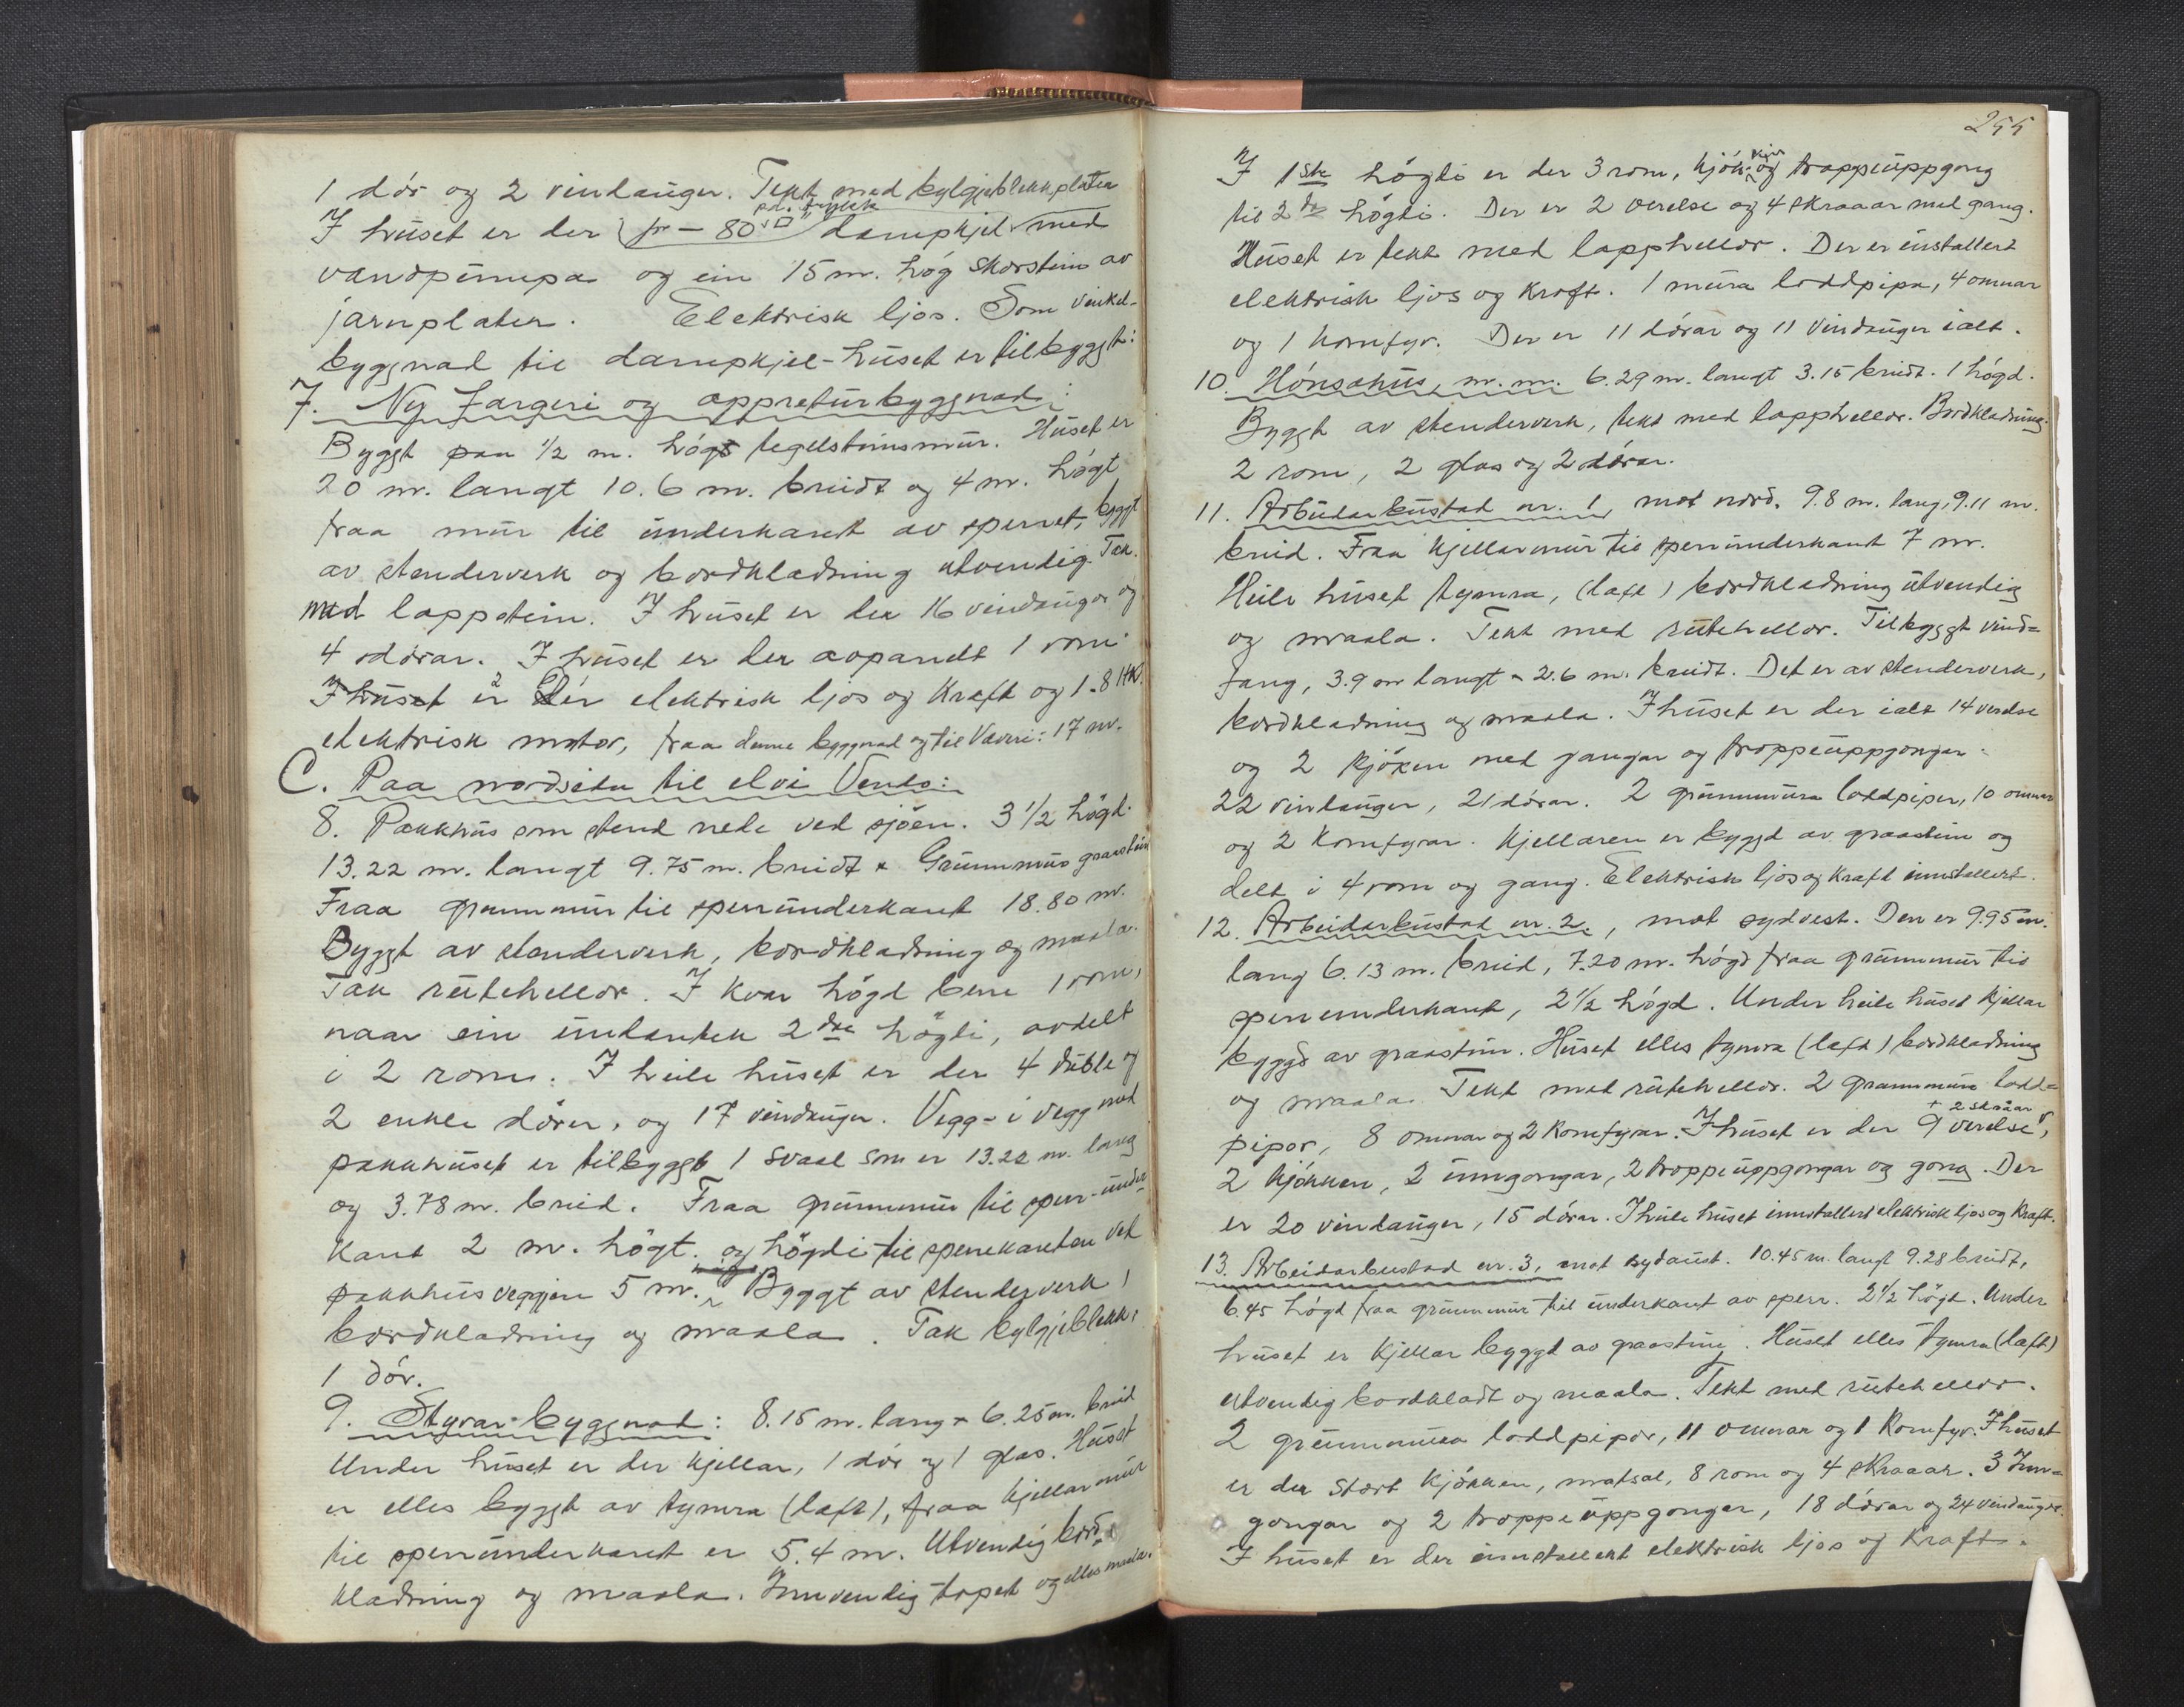 1 dór og 2 vindauger. Tekt med bylgjeblekkplater
I huset er der 80 dampkjel med
vandpumpa og ein 15 m. hóg skorstein av
jarnplater. Elektrisk ljos. Som vinkel-
byggnad til dampkjel-huset er tilbyggt:
7. Ny Fargeri og appreturbyggnad:
Byggt paa 1/2 m. högt teglsteinsmur. Huset er
20 m. langt 10.6 m. breidt og 4 m. högt
fraa mur til underkant av sperret, byggt
av stenderverk og bordkladning utvendig. Tak
med lappstein. I huset er der 16 vindauger og
4 dórar. I huset er der aapandt 1 rom
I huset er der elektrisk ljos og kraft og 1.8 HK.
elektrisk motor, fraa denne byggnad og til Væveri: 17 m.
C. Paa nordsida til elvi Vendo:
8. Pakkhus som stend nede ved sjöen. 3 1/2 högd.
13.22 m. langt 9.75 m. breidt x Grunnmur graastein
Fraa grunnmur til sperrunderkant 18.80 m.
Byggt av stenderverk, bordkladning og maala.
Tak rutehellor. I kvar högd bere 1 rom,
naar ein undantek 2dre högdi, avdelt
i 2 rom. I heile huset er der 4 duble og
2 enkle dörer, og 17 vindauger. Vegg-i vegg med
pakkhuset er tilbyggt 1 svael som er 13.22 m. lang
og 3.78 m. breid. Fraa grunnmur til sperr-under
kant 2 m. högt. og högdi til sperrekanten ved
pakkhusveggjen 5 m. Byggt av stenderverk,
bordkladning og maala. Tak bylgjeblekk,
1 dór.
9. Styrar-byggnad: 8.15 m. lang x 6.25 m. breid
Under huset er der kjellar, 1 dór og 1 glas. Huset
er elles byggt av tymra (laft), fraa kjellarmur
til sperrunderkant er 5.4 m. Utvendig bord-
kladning og maala. Innvendig tapet og elles maala.
255
I 1ste högdi er der 3 rom, kjók- og trappeuppgong
til 2dre högdi. Der er 2 verelse og 4 skraaar med gang.
Huset er tekt med lapphellor. Der er installert
elektrisk ljos og kraft. 1 mura loddpipa, 4 omnar
og 1 komfyr. Der er 11 dórar og 11 vindauger ialt.
10. Hónsahus, m.m. 6.29 m. langt 3.15 breidt. 1 högd.
Byggt av stenderverk, tekt med lapphellor. Bordkladning.
2 rom, 2 glas og 2 dórar.
11. Arbeidarbustad nr. 1, mot nord. 9.8 m. lang, 9.11 m.
breid. Fraa kjellarmur til sperrunderkant 7 m.
Heile huset tymra, (laft) bordkladning utvendig
og maala. Tekt med rutehellor. Tilbyggt vind=
fang, 3.9 m langt - 2.6 m. breidt. Det er av stenderverk,
bordkladning og maala. I huset er der ialt 14 verelse
og 2 kjöken med gangar og trappeuppgongar.
22 vindauger, 21 dórar. 2 grunnmura loddpiper, 10 omnar
og 2 komfyrar. Kjellaren er byggd av graastein og
delt i 4 rom og gang. Elektrisk ljos og kraft innstallert.
12. Arbeidarbustad nr. 2, mot sydvest. Den er 9.95 m.
lang 6.13 m. breid, 7.20 m. högd fraa grunnmur til
sperrunderkant, 2 1/2 högd. Under heile huset kjellar
byggd av graastein. Huset elles tymra (laft) bordkladning
og maala. Tekt med rutehellor. 2 grunnmura lodd=
pipor, 8 omnar og 2 komfyrar. I huset er der 9 verelse + 2 skraar,
2 kjökken, 2 inngongar, 2 trappeuppgongar og gong. Der
er 20 vindauger, 15 dórar. I heile huset innstallert elektrisk ljos og kraft.
13. Arbeidarbustad nr. 3, mot sydaust. 10.45 m. langt 9.28 breidt,
6.45 högd fraa grunnmur til underkant av sperr. 2 1/2 högd. Under
huset er kjellar byggd av graastein. Huset elles tymra (laft)
utvendig bordkladt og maala. Tekt med rutehellor.
2 grunnmura loddpipor, 11 omnar og 1 komfyr. I huset
er der stort kjökken, matsal, 8 rom og 4 skraaar. 3 Inn=
gongar og 2 trappeuppgongar, 18 dórar og 24 vindauger.
I huset er der innstallert elektrisk ljos og kraft.